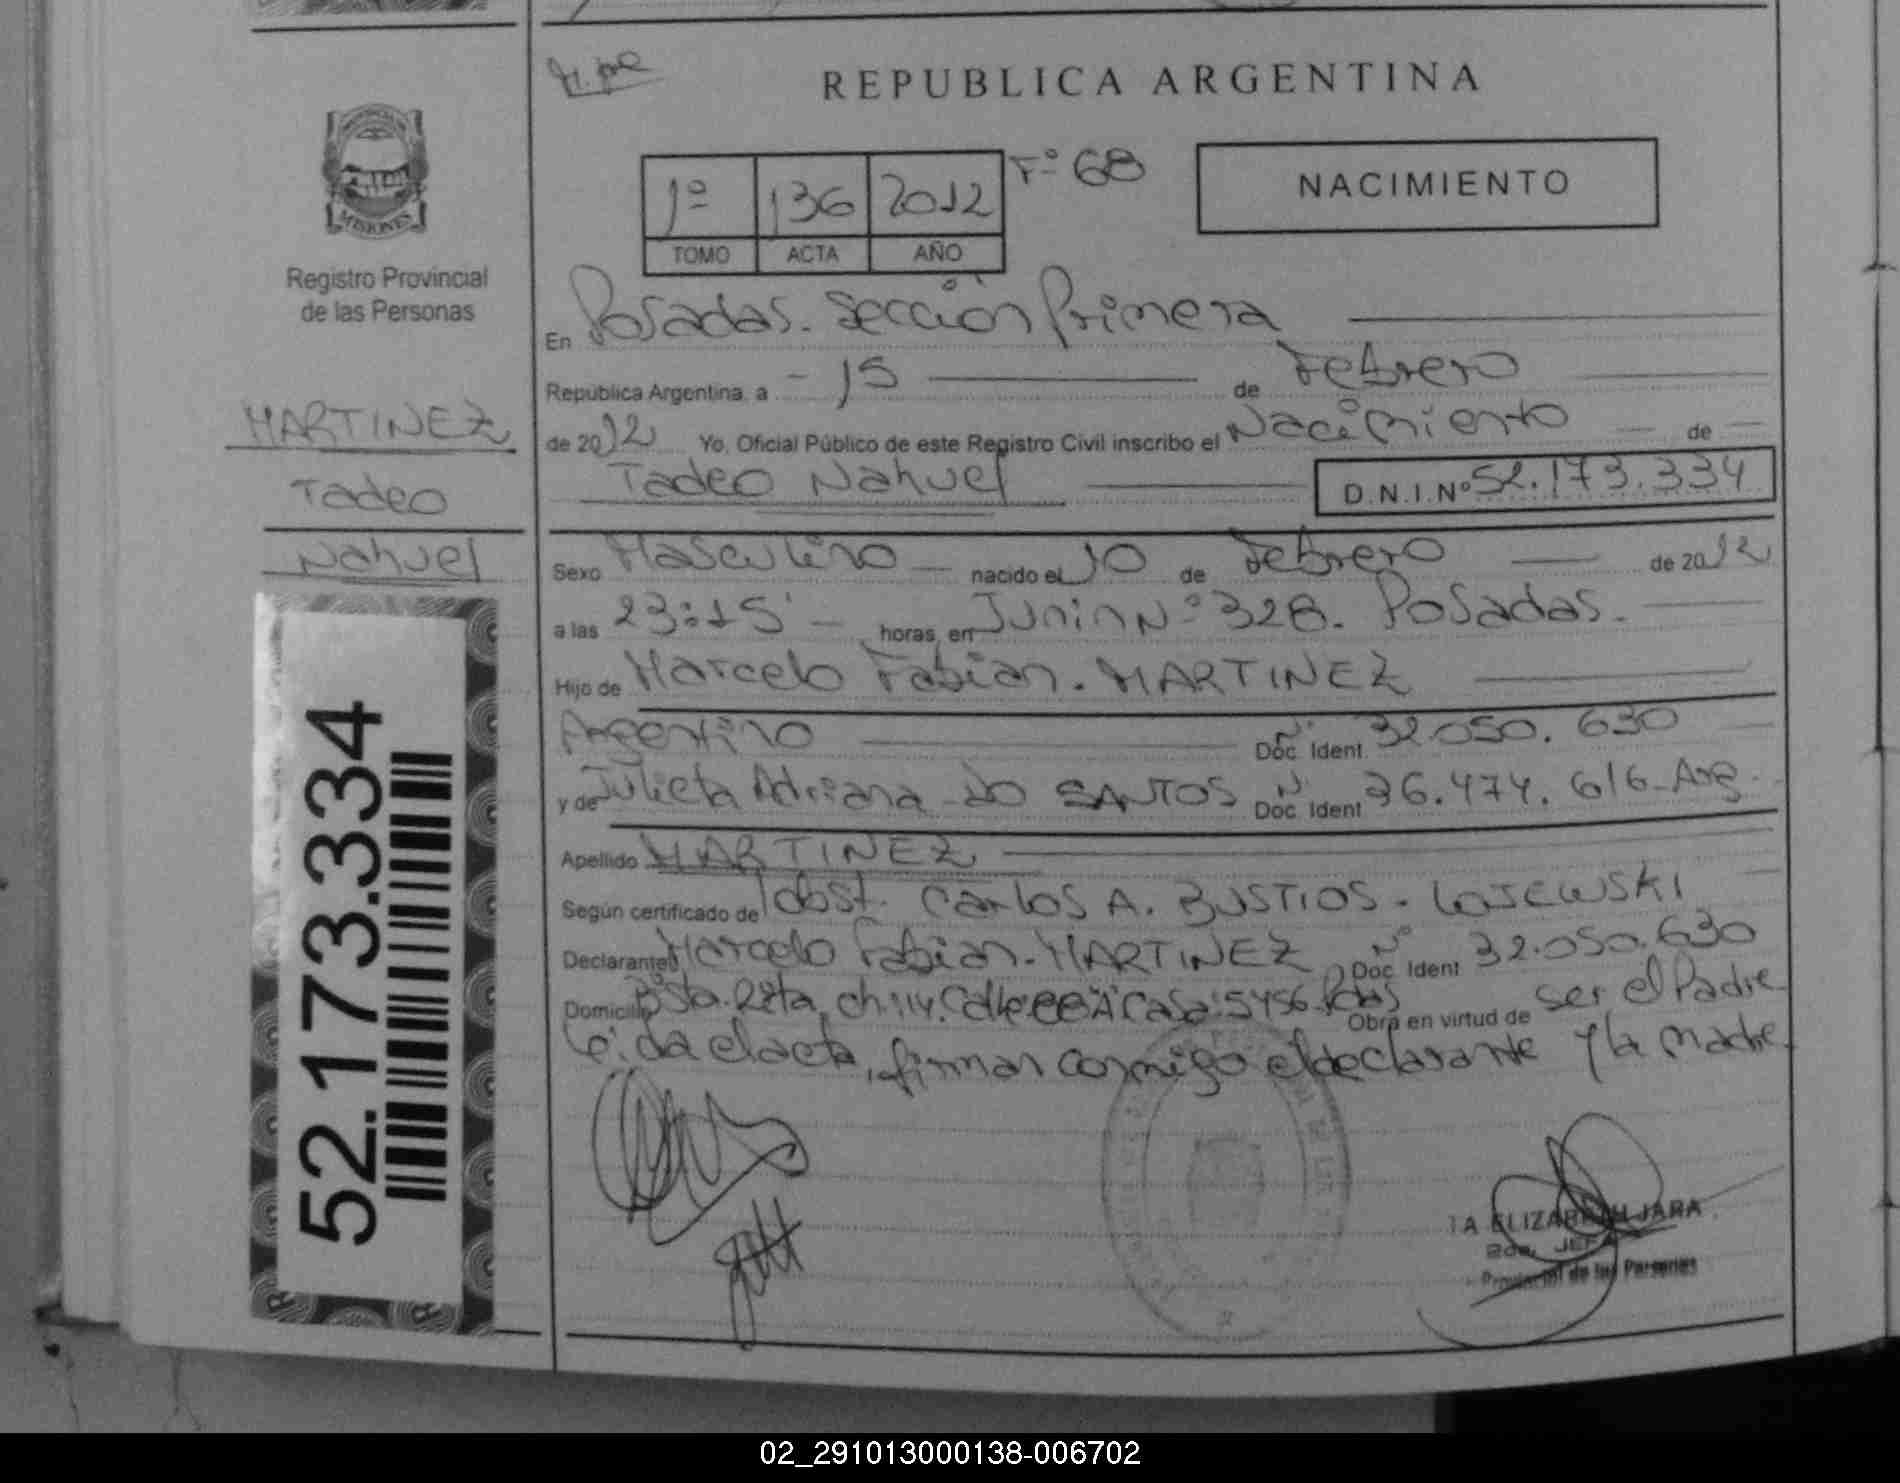 REPUBLICA ARGENTINA
MISIONES
Registro Provincial
de las Personas
1º 136 2012 Fº 68
TOMO ACTA AÑO
NACIMIENTO
MARTINEZ
Tadeo
Nahuel
52.173.334
En Posadas. Sección Primera
República Argentina, a - 15 de Febrero
de 2012 Yo, Oficial Público de este Registro Civil inscribo el Nacimiento de
Tadeo Nahuel D.N.I.Nº 52.173.334
Sexo Masculino nacido el 10 de Febrero de 2012
a las 23:15' horas, en Junin Nº 328. Posadas.
Hijo de Marcelo Fabian. MARTINEZ
Argentino Doc. Ident. Nº 32.050.630
y de Julieta Adriana DO SANTOS Doc. Ident. Nº 36.474.616 - Arg.
Apellido MARTINEZ
Según certificado de obst. Carlos A. BUSTIOS - LOJEWSKI
Declarante Marcelo Fabian. MARTINEZ Doc. Ident. Nº 32.050.630
Domicilio Bº Sta. Rita, ch: 114. Calle "A" Casa: 5456. Pdas Obra en virtud de ser el Padre
Leida el acta, firman conmigo el declarante y la madre
ELIZABETH JARA
2da. JEFA
Provincial de las Personas
02_291013000138-006702